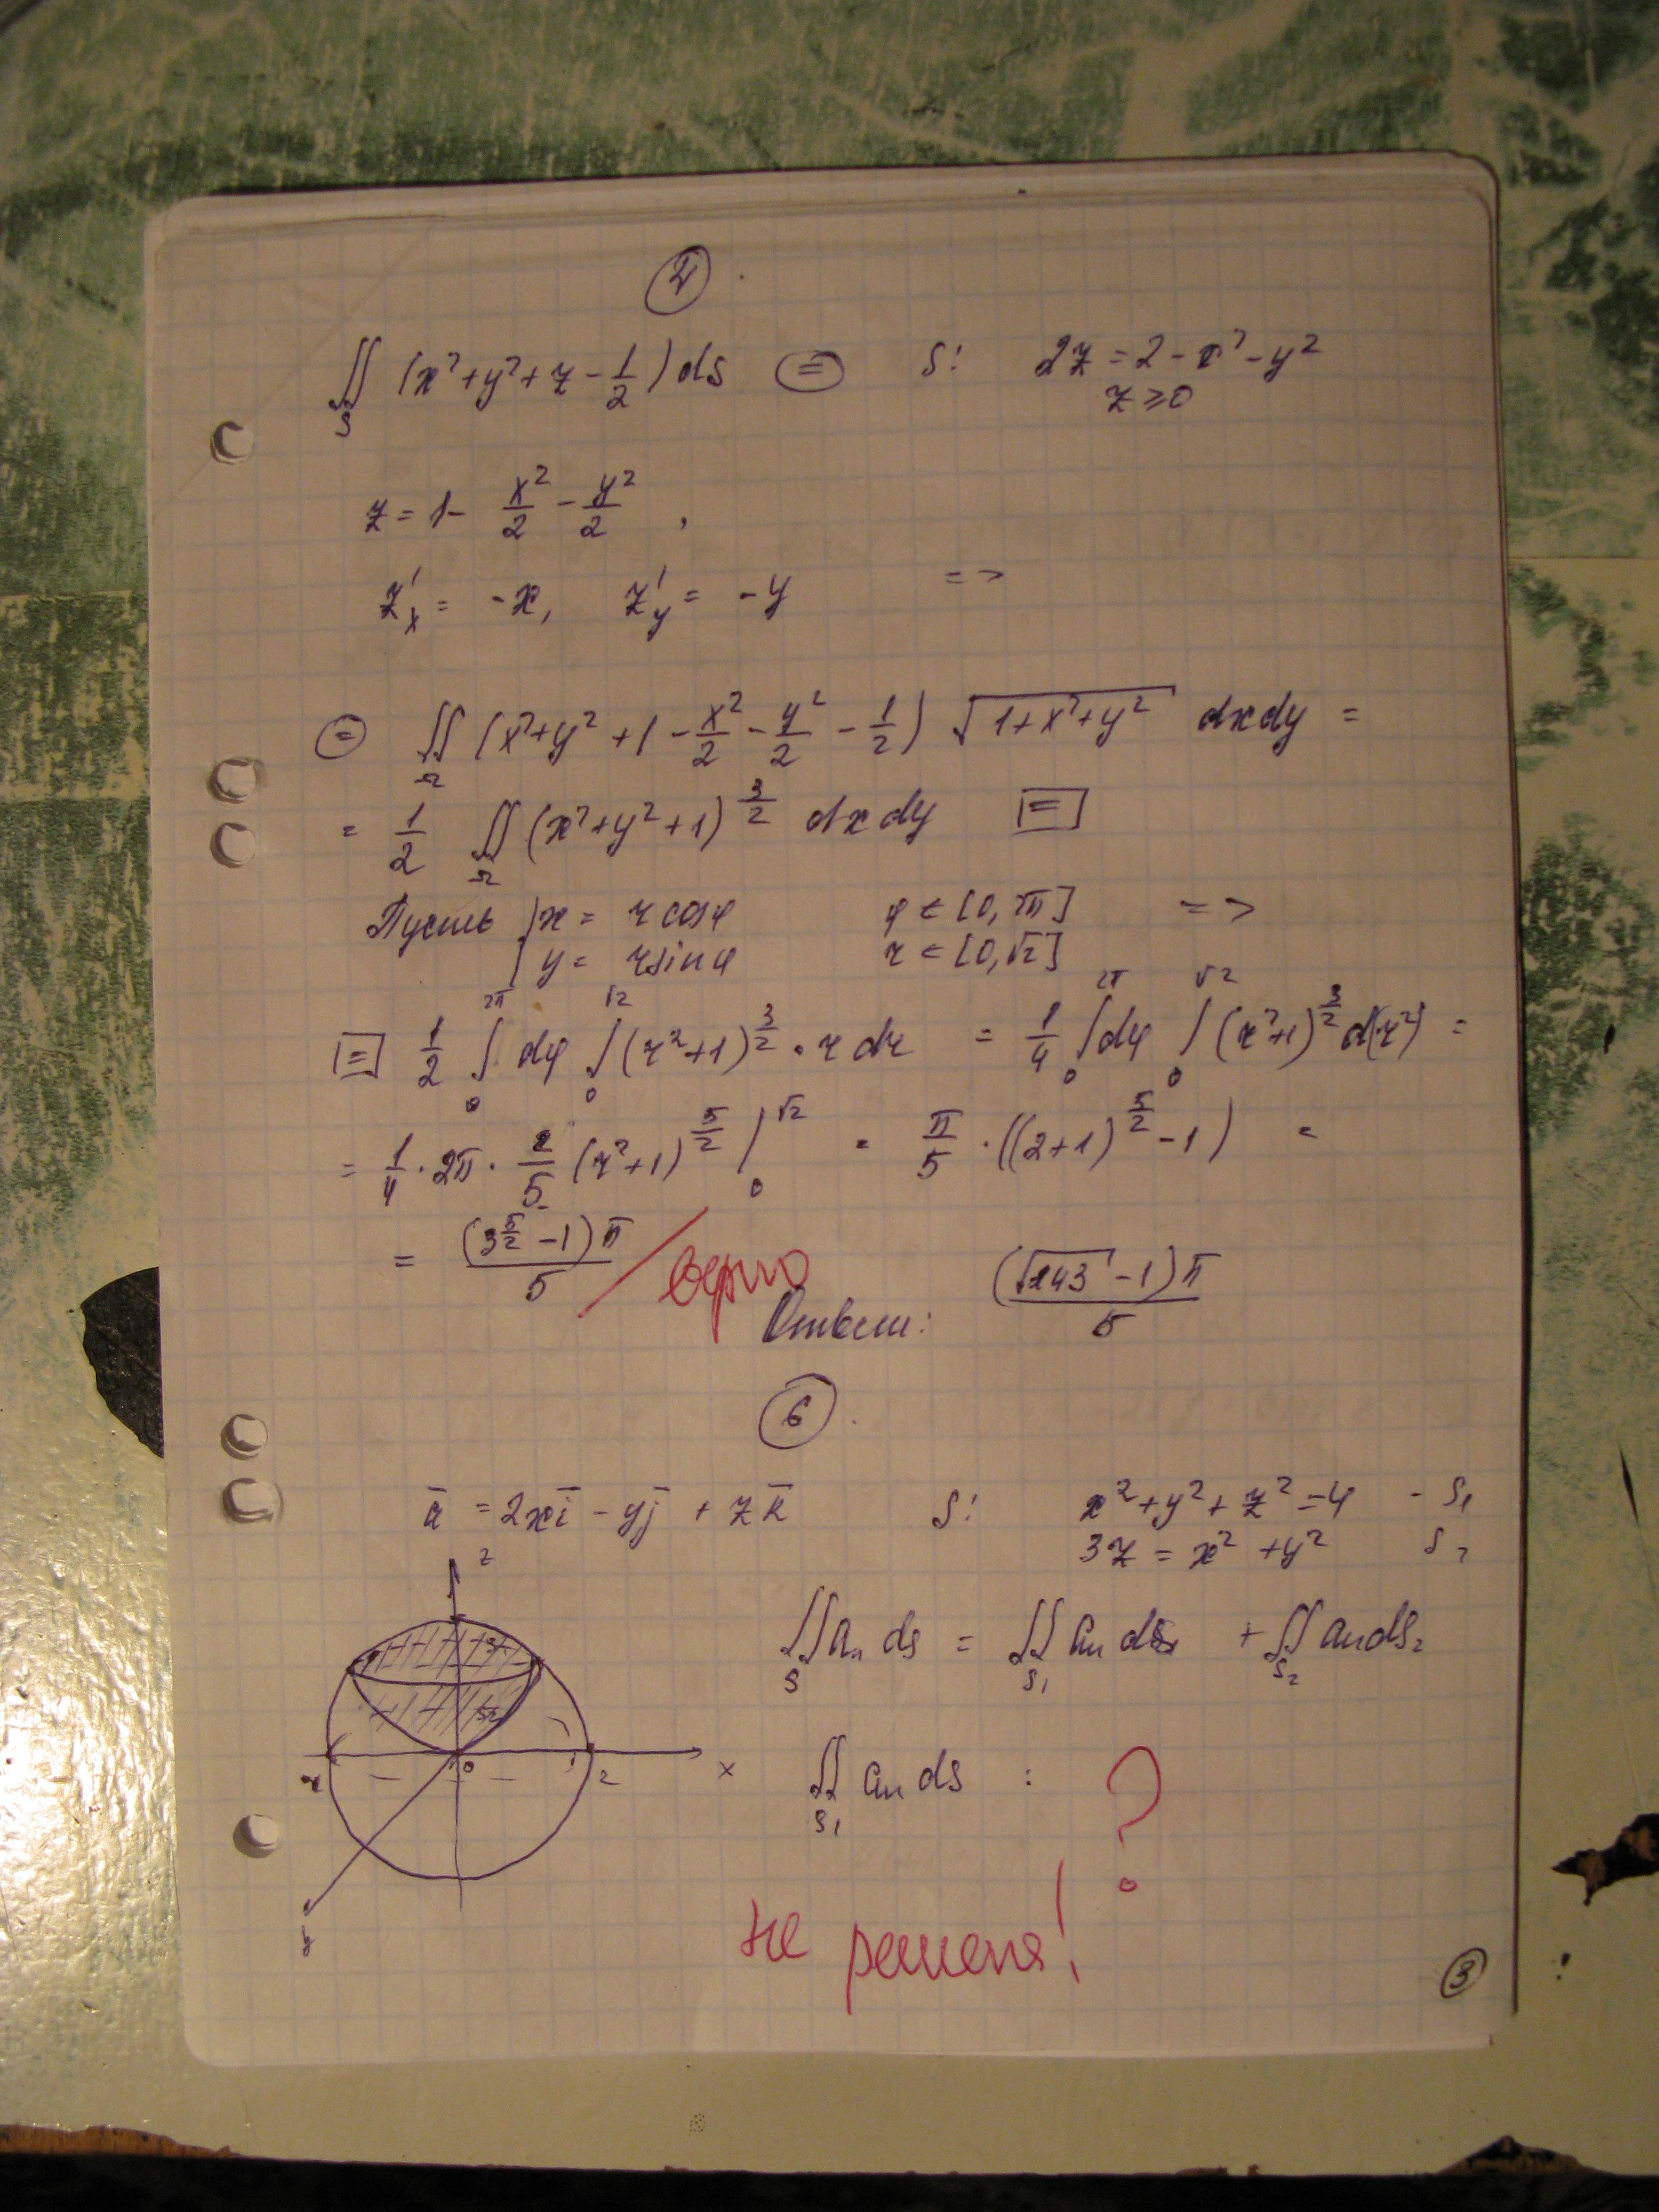 ④.
∬_S (x²+y²+z-1/2)ds ⊜ S: 2z=2-x²-y²
z≥0
z=1-x²/2-y²/2,
z'_x=-x, z'_y=-y =>
⊜ ∬_Ω (x²+y²+1-x²/2-y²/2-1/2)√(1+x²+y²) dxdy =
= 1/2 ∬_Ω (x²+y²+1)^(3/2) dxdy [=]
Пусть { x= r cosφ φ∈[0,2π] =>
y= r sinφ r∈[0,√2]
[=] 1/2 ∫_0^(2π) dφ ∫_0^(√2) (r²+1)^(3/2)·r dr = 1/4 ∫_0^(2π) dφ ∫_0^(√2) (r²+1)^(3/2) d(r²) =
= 1/4·2π·2/5 (r²+1)^(5/2) |_0^(√2) = π/5·((2+1)^(5/2)-1) =
= (3^(5/2)-1)π/5 / верно
Ответ: (√243-1)π/5
⑥.
ā=2xī-yj̄+zk̄ S: x²+y²+z²=4 - S₁
3z=x²+y² S₂
z
∬_S aₙ ds = ∬_S₁ aₙ ds₁ + ∬_S₂ aₙ ds₂
S₁
S₂
0 2 x
y
∬_S₁ aₙ ds : ?
не решена!
③